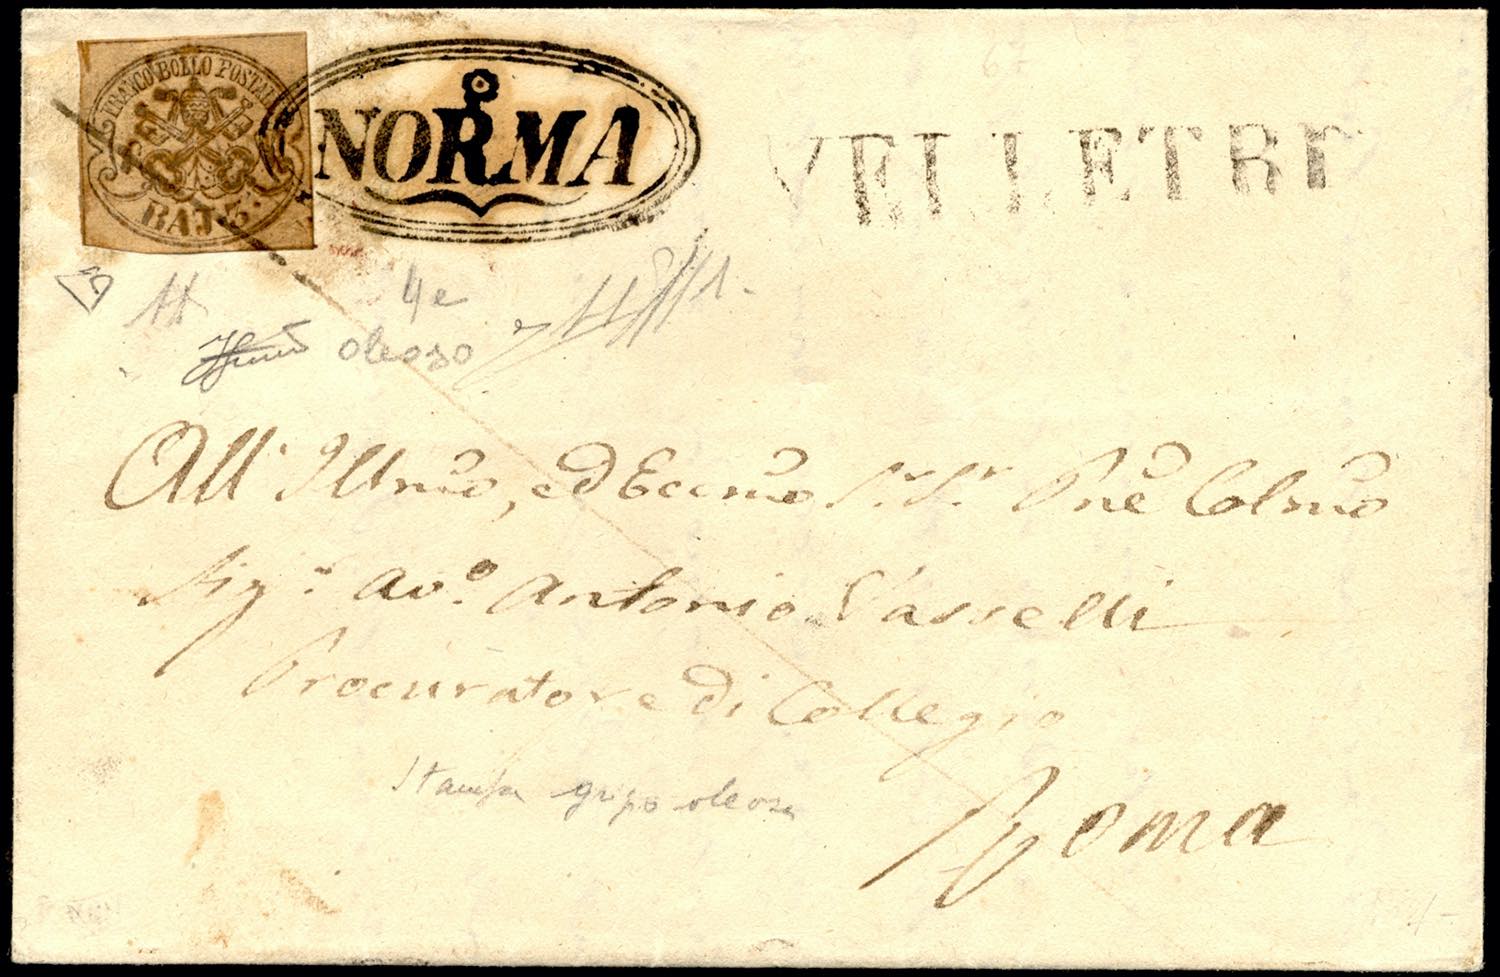 FRANCO BOLLO POSTALE
BAJ. 3.
NORMA
VELLETRI
4e
oleoso
All' Illmo, ed Eccmo Sr. Sr. Pnē Colmo
Sigr. Avo. Antonio Vasselli
Procuratore di Collegio
Stampa grigio oleosa
Roma